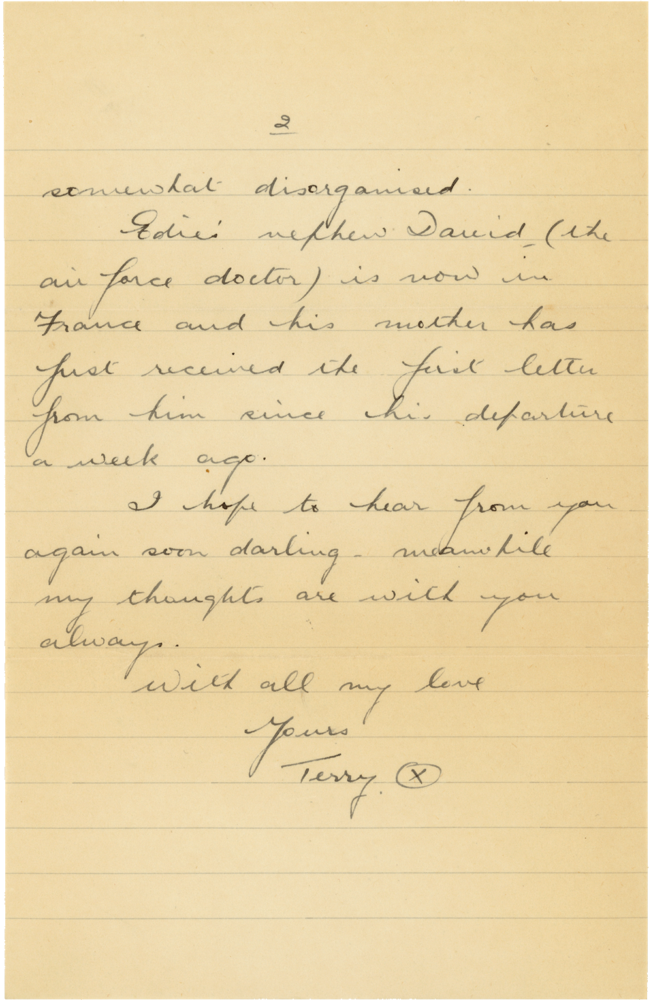 2
somewhat disorganised.
Edie's nephew David (the
air force doctor) is now in
France and his mother has
just received the first letter
from him since his departure
a week ago.
I hope to hear from you
again soon darling - meanwhile
my thoughts are with you
always.
With all my love
Yours
Terry. X